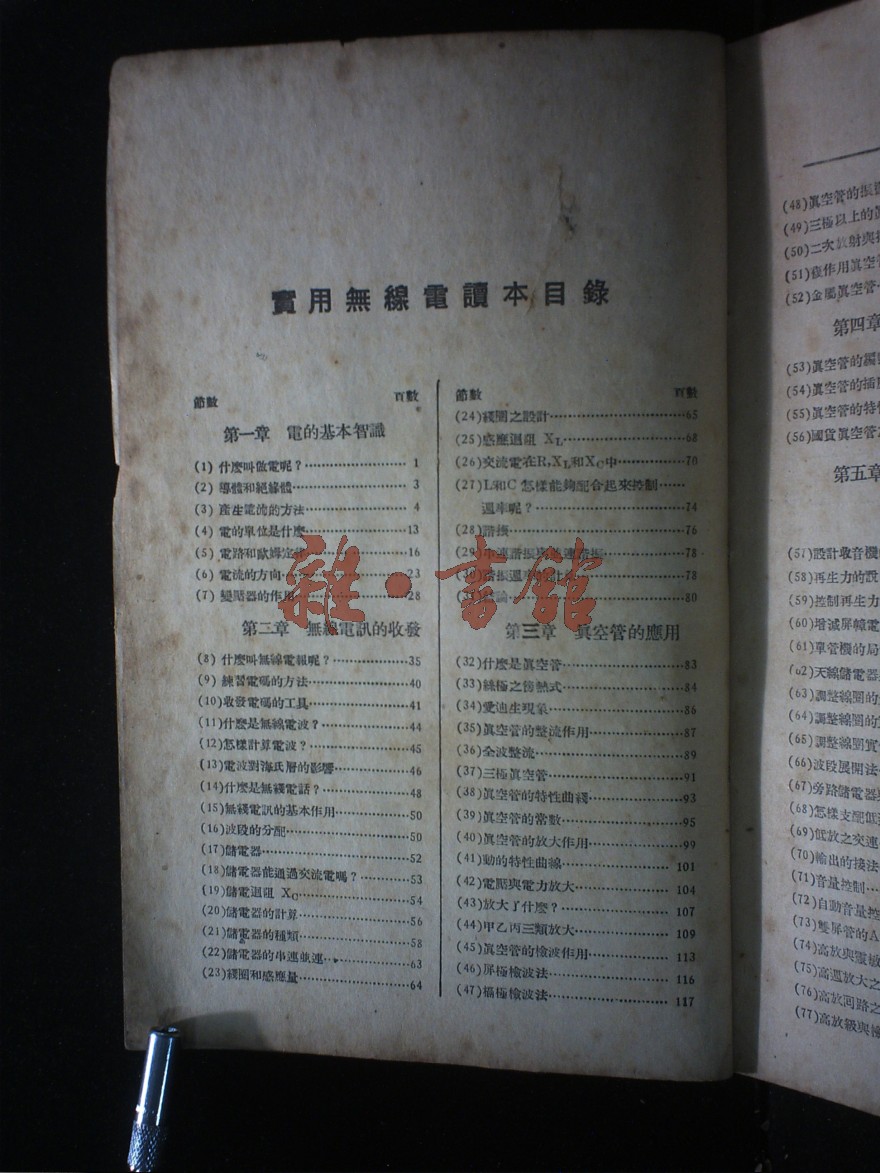 實用無線電讀本目錄
節數 頁數
第一章 電的基本智識
(1) 什麼叫做電呢？ 1
(2) 導體和絕緣體 3
(3) 產生電流的方法 4
(4) 電的單位是什麼 13
(5) 電路和歐姆定律 16
(6) 電流的方向 23
(7) 變壓器的作用 28
第二章 無線電訊的收發
(8) 什麼叫無線電報呢？ 35
(9) 練習電碼的方法 40
(10)收發電碼的工具 41
(11)什麼是無線電波？ 44
(12)怎樣計算電波？ 45
(13)電波對海氏層的影響 46
(14)什麼是無綫電話？ 48
(15)無綫電訊的基本作用 50
(16)波段的分配 50
(17)儲電器 52
(18)儲電器能通過交流電嗎？ 53
(19)儲電迴阻 XC 54
(20)儲電器的計算 56
(21)儲電器的種類 58
(22)儲電器的串連並連 63
(23)綫圈和感應量 64
節數 頁數
(24)綫圈之設計 65
(25)感應迴阻 XL 68
(26)交流電在R,XL和XC中 70
(27)L和C 怎樣能夠配合起來控制
週率呢？ 74
(28)諧振 76
(29)串連諧振與並連諧振 78
(30)諧振週率 78
(31)結論 80
第三章 眞空管的應用
(32)什麼是眞空管 83
(33)絲極之傍熱式 84
(34)愛迪生現象 86
(35)眞空管的整流作用 87
(36)全波整流 89
(37)三極眞空管 91
(38)眞空管的特性曲綫 93
(39)眞空管的常數 95
(40)眞空管的放大作用 99
(41)動的特性曲線 101
(42)電壓與電力放大 104
(43)放大了什麼？ 107
(44)甲乙丙三類放大 109
(45)眞空管的檢波作用 113
(46)屏極檢波法 116
(47)柵極檢波法 117
(48)眞空管的振
(49)三極以上的
(50)二次放射與
(51)復作用眞空管
(52)金屬眞空管
第四章
(53)眞空管的
(54)眞空管的插
(55)眞空管的特性
(56)國貨眞空管
第五章
(57)設計收音機
(58)再生力的設
(59)控制再生力
(60)增減屏幛電
(61)單管機的局
(62)天線儲電器
(63)調整線圈的
(64)調整線圈的
(65)調整線圈實
(66)波段展開法
(67)旁路儲電器
(68)怎樣支配低
(69)低放之交連
(70)輸出的接法
(71)音量控制
(72)自動音量控
(73)雙屏管的A
(74)高放與靈敏
(75)高週放大之
(76)高放回路之
(77)高放級與檢
雜·書館